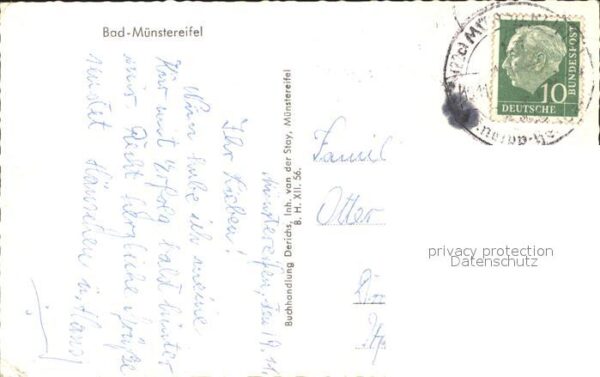 Bad-Münstereifel
Münstereifel, den 19.11.
Ihr Lieben!
Nun habe ich meine
Kur mit Erfolg bald hinter
mir. Recht herzliche Grüße
sendet Hänschen u.
Buchhandlung Derichs, Inh. van der Stay, Münstereifel
B. H. XII. 56.
10
DEUTSCHE
BUNDESPOST
Famil
Otter
privacy protection
Datenschutz